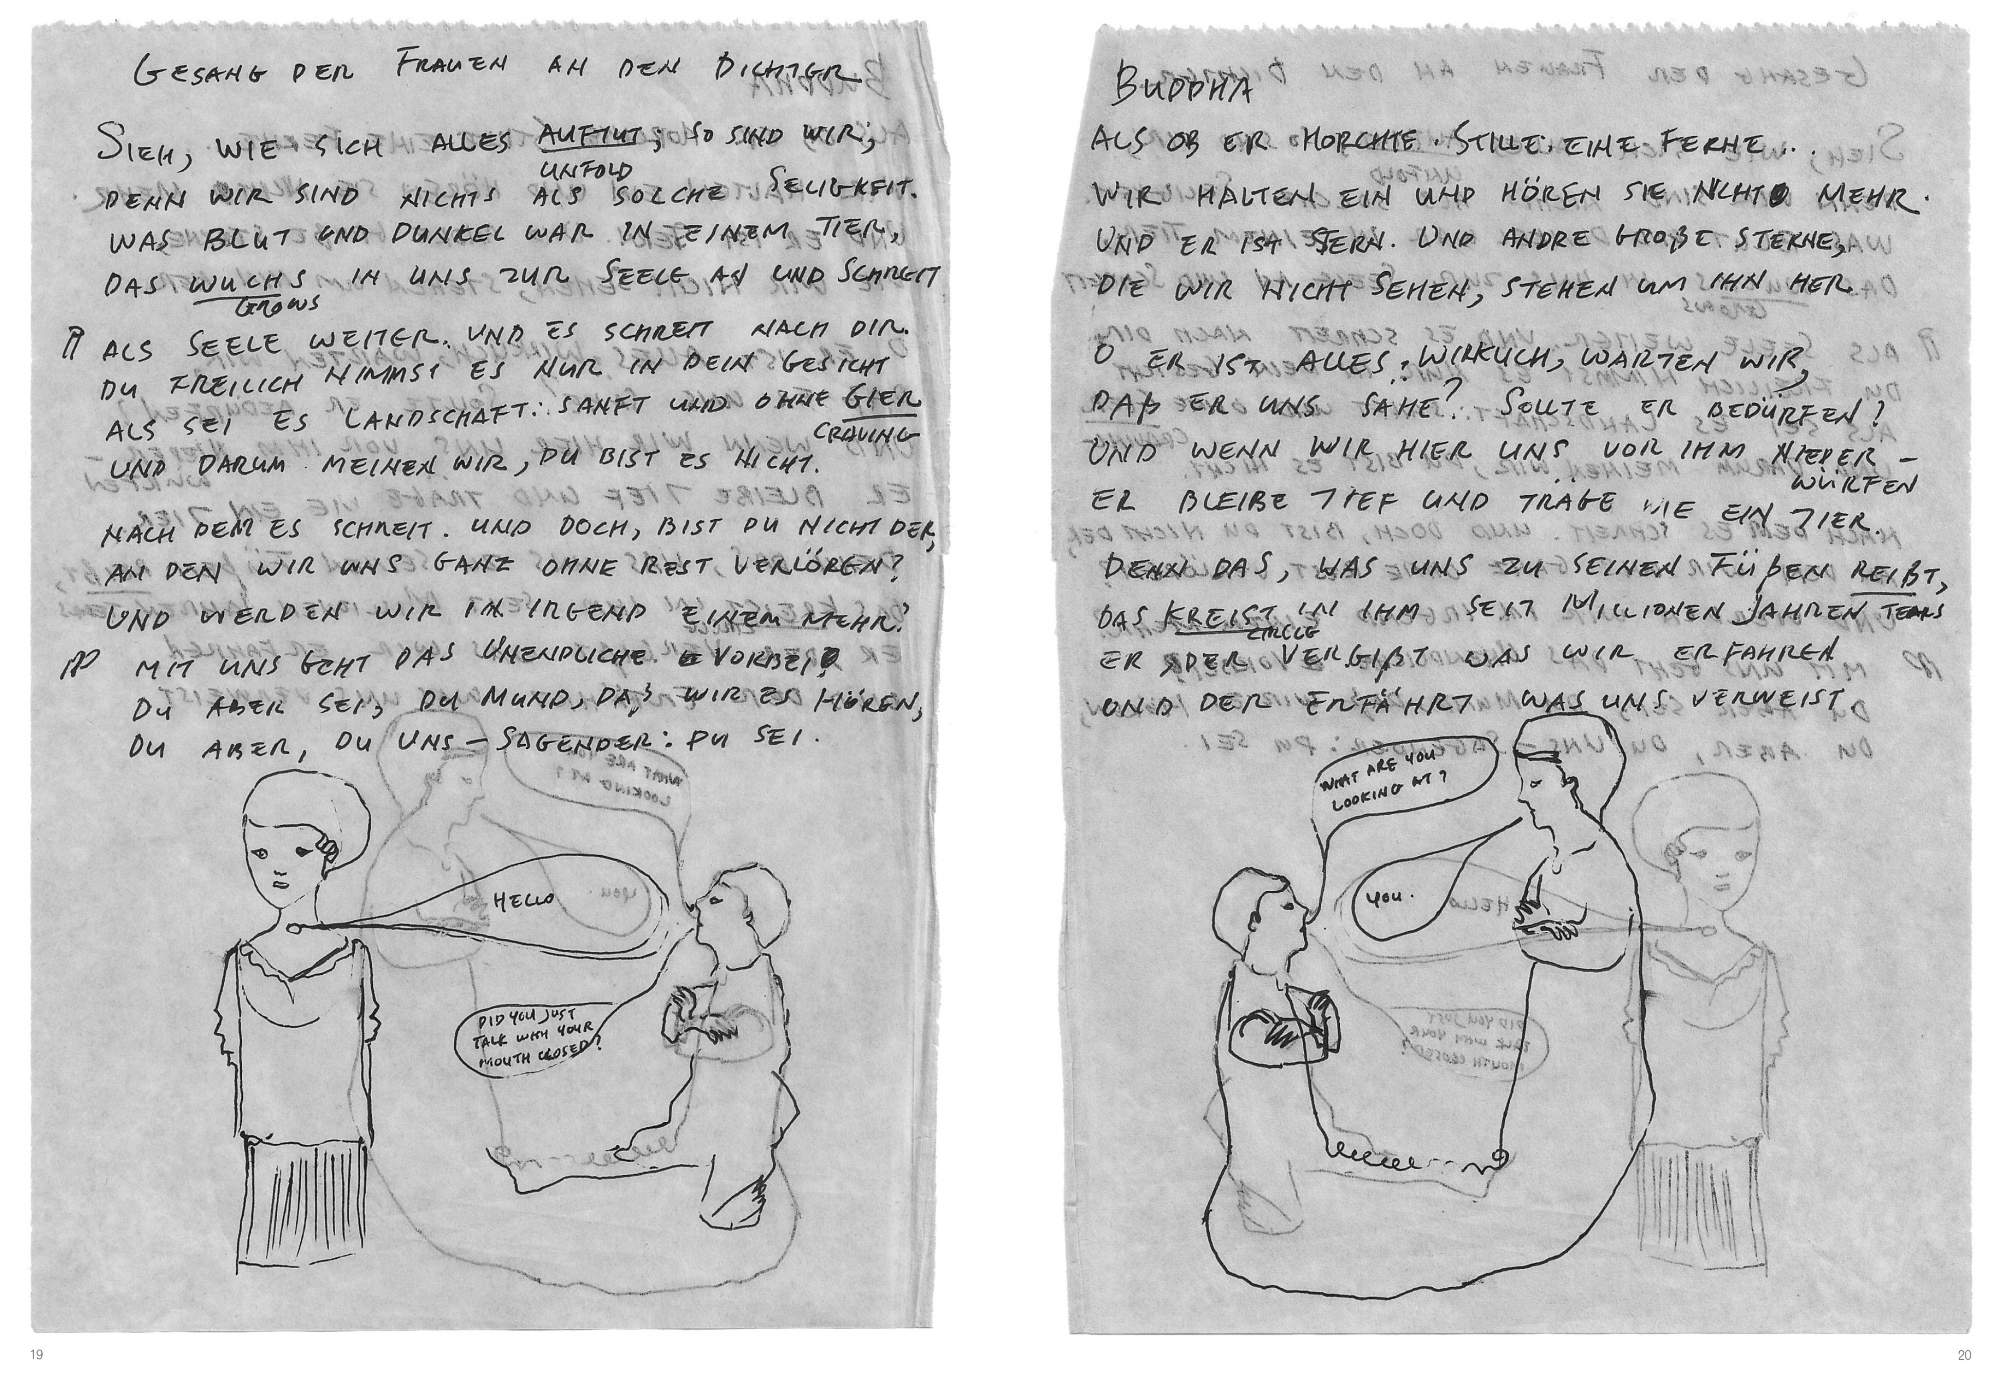 GESANG DER FRAUEN AN DEN DICHTER
SIEH, WIE SICH ALLES AUFTUT; SO SIND WIR;
UNFOLD
DENN WIR SIND NICHTS ALS SOLCHE SELIGKEIT.
WAS BLUT UND DUNKEL WAR IN EINEM TIER,
DAS WUCHS IN UNS ZUR SEELE AN UND SCHREIT
GROWS
ALS SEELE WEITER. UND ES SCHREIT NACH DIR.
DU FREILICH NIMMST ES NUR IN DEIN GESICHT
ALS SEI ES LANDSCHAFT: SANFT UND OHNE GIER
CRAVING
UND DARUM MEINEN WIR, DU BIST ES NICHT.
NACH DEM ES SCHREIT. UND DOCH, BIST DU NICHT DER,
AN DEN WIR UNS GANZ OHNE REST VERLÖREN?
UND WERDEN WIR IN IRGEND EINEM MEHR?
MIT UNS GEHT DAS UNENDLICHE VORBEI
DU ABER SEI, DU MUND, DAß WIR ES HÖREN,
DU ABER, DU UNS-SAGENDER: DU SEI.
HELLO
DID YOU JUST
TALK WITH YOUR
MOUTH CLOSED?
19
BUDDHA
ALS OB ER HORCHTE. STILLE: EINE FERNE...
WIR HALTEN EIN UND HÖREN SIE NICHT MEHR.
UND ER IST STERN. UND ANDRE GROßE STERNE,
DIE WIR NICHT SEHEN, STEHEN UM IHN HER.
O ER IST ALLES. WIRKLICH, WARTEN WIR,
DAß ER UNS SÄHE? SOLLTE ER BEDÜRFEN?
UND WENN WIR HIER UNS VOR IHM NIEDER-
WÜRFEN
ER BLEIBE TIEF UND TRÄGE WIE EIN TIER.
DENN DAS, WAS UNS ZU SEINEN FÜßEN REIßT,
DAS KREIST IN IHM SEIT MILLIONEN JAHREN TEARS
CIRCLE
ER DER VERGIßT WAS WIR ERFAHREN
UND DER ERFÄHRT WAS UNS VERWEIST
WHAT ARE YOU
LOOKING AT?
YOU.
20